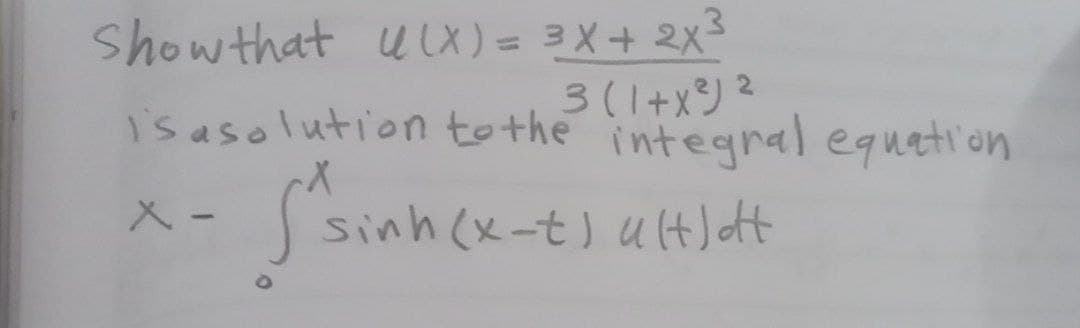 Show that u(x) = 3x + 2x³
3(1+x²)²
is a solution to the integral equation
x - ∫₀ˣ sinh(x-t) u(t)dt